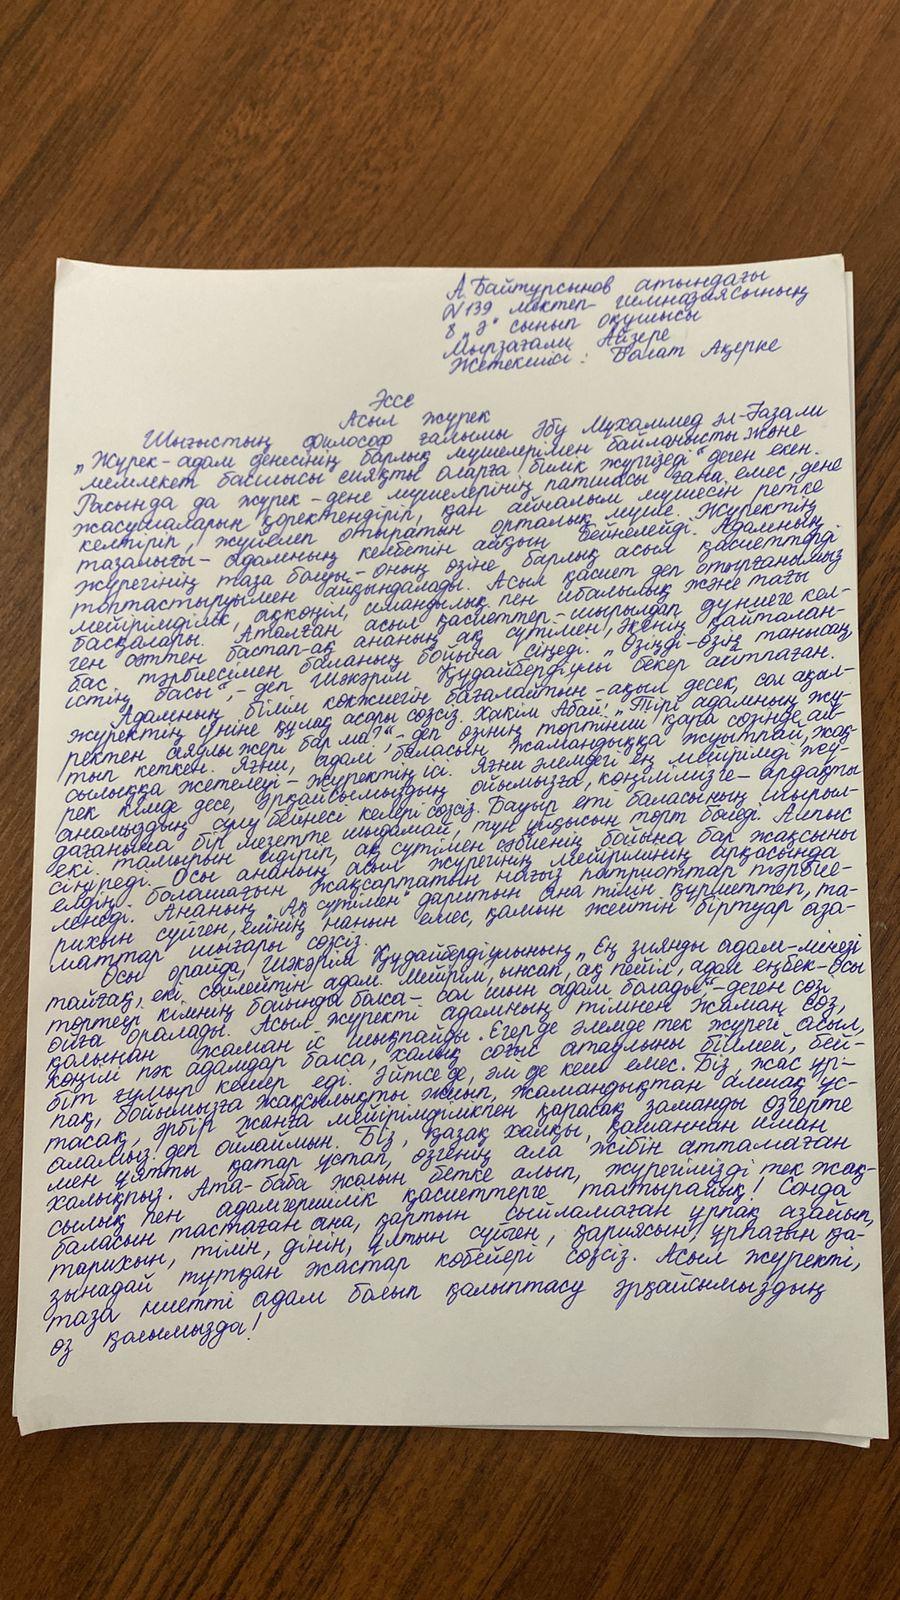 А. Байтұрсынов атындағы
№139 мектеп-гимназиясының
8 „Ә" сынып оқушысы
Мырзағали Айзере
Жетекшісі: Болат Ақерке
Эссе
Асыл жүрек
Шығыстың философ ғалымы Әбу Мұхаммед әл-Ғазали
„Жүрек-адам денесінің барлық мүшелерімен байланысты және
мемлекет басшысы сияқты оларға билік жүргізеді" деген екен.
Расында да жүрек-дене мүшелерінің патшасы ғана емес, дене
жасушаларын қоректендіріп, қан айналым мүшесін ретке
келтіріп, жүйелеп отыратын орталық мүше. Жүректің
тазалығы-адамның келбетін айқын бейнелейді. Адамның
жүрегінің таза болуы-оның өзіне барлық асыл қасиеттерді
топтастыруымен айқындалады. Асыл қасиет деп отырғанымыз
мейірімділік, ақкөңіл, имандылық пен ибалылық және тағы
басқалары. Аталған асыл қасиеттер-шырылдап дүниеге кел-
ген сәттен бастап-ақ ананың ақ сүтімен, әкенің қайталан-
бас тәрбиесімен баланың бойына сіңеді. „Өзіңді-өзің танысаң,
істің басы",-деп Шәкәрім Құдайбердіұлы бекер айтпаған.
Адамның білім көкжиегін бағалайтын-ақыл десек, сол ақыл-
жүректің үніне құлақ асары сөзсіз. Хакім Абай: „Тірі адамның жү-
ректен аяулы жері бар ма?"-деп өзінің төртінші қара сөзінде ай-
тып кеткен. Яғни, адам баласын жамандыққа жуытпай, жақ-
сылыққа жетелеуі-жүректің ісі. Яғни әлемдегі ең мейірімді жү-
рек кімде десе, әрқайсымыздың ойымызға, көңілімізге-ардақты
анамыздың сұлу бейнесі келері сөзсіз. Бауыр еті баласының шырыл-
дағанына бір мезетте шыдамай, түн ұйқысын төрт бөледі. Алпыс
екі тамырын идіріп, ақ сүтімен сәбиенің бойына бар жақсыны
сіңіреді. Осы ананың асыл жүрегінің мейірімінің арқасында
елдің болашағын жақсартатын нағыз патриоттар тәрбие-
ленеді. Ананың „Ақ сүтімен" даритын ана тілін құрметтеп, та-
рихын сүйген, елінің нанын емес, қамын жейтін біртуар аза-
маттар шығары сөзсіз.
Осы орайда, Шәкәрім Құдайбердіұлының „Ең зиянды адам-мінезі
тайғақ, екі сөйлейтін адам. Мейірім, ынсап, ақ пейіл, адал еңбек-осы
төртеуі кімнің бойында болса-сол шын адам болады"-деген сөзі
ойға оралады. Асыл жүректі адамның тілінен жаман сөз,
қолынан жаман іс шықпайды. Егерде әлемде тек жүрегі асыл,
көңілі пәк адамдар болса, халық соғыс атаулыны білмей, бей-
біт ғұмыр кешер еді. Әйтсе де, әлі де кеш емес. Біз, жас ұр-
пақ, бойымызға жақсылықты жиып, жамандықтан алшақ ұс-
тасақ, әрбір жанға мейірімділікпен қарасақ заманды өзгерте
аламыз деп ойлаймын. Біз, қазақ халқы, қашаннан иман
мен ұятты қатар ұстап, өзгенің ала жібін аттамаған
халықпыз. Ата-баба жолын бетке алып, жүрегімізді тек жақ-
сылық пен адамгершілік қасиеттерге толтырайық! Сонда
баласын тастаған ана, қартын сыйламаған ұрпақ азайып,
тарихын, тілін, дінін, ұлтын сүйген, қариясын, ұрпағын қа-
зынадай тұтқан жастар көбейері сөзсіз. Асыл жүректі,
таза ниетті адам болып қалыптасу әрқайсымыздың
өз қолымызда!